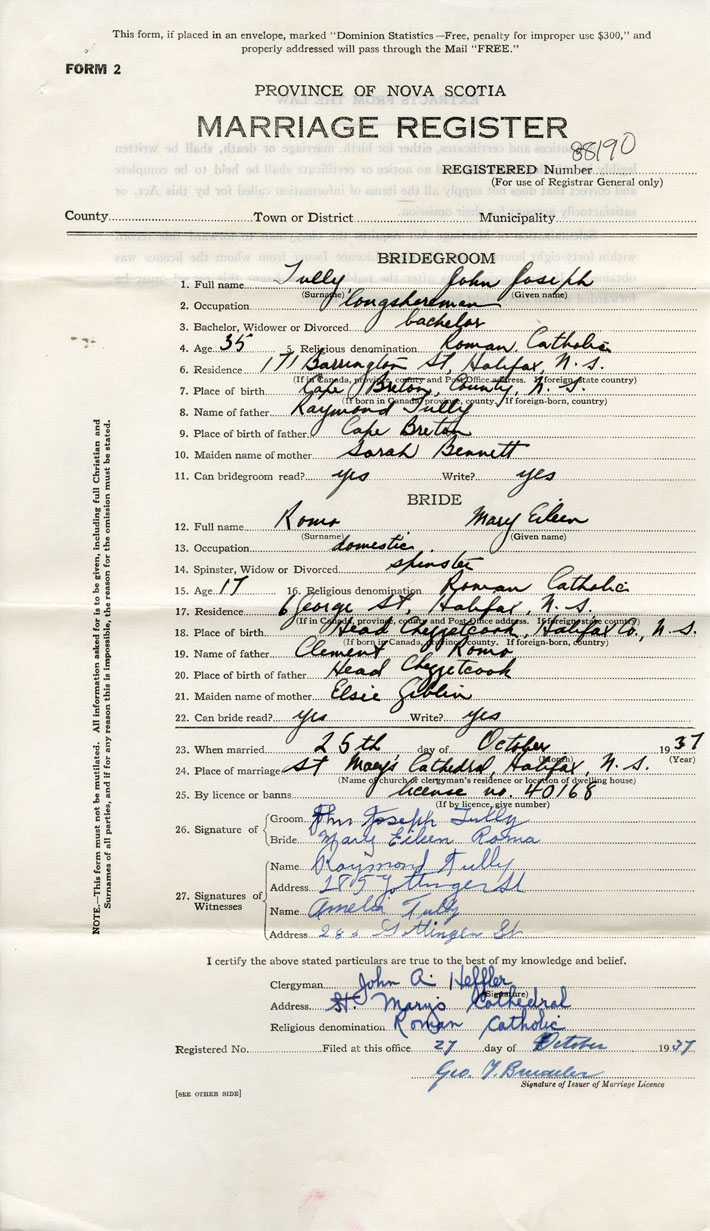 This form, if placed in an envelope, marked "Dominion Statistics—Free, penalty for improper use $300," and
properly addressed will pass through the Mail "FREE."
FORM 2
PROVINCE OF NOVA SCOTIA
MARRIAGE REGISTER
REGISTERED Number 88190
(For use of Registrar General only)
County Town or District Municipality
BRIDEGROOM
1. Full name Tully John Joseph
(Surname) (Given name)
2. Occupation longshoreman
3. Bachelor, Widower or Divorced bachelor
4. Age 35 5. Religious denomination Roman Catholic
6. Residence 171 Barrington St, Halifax, N.S.
(If in Canada, province, county and Post Office address. If foreign state country)
7. Place of birth Cape Breton, County, N.S.
(If born in Canada, province, county. If foreign-born, country)
8. Name of father Raymond Tully
9. Place of birth of father Cape Breton
10. Maiden name of mother Sarah Bennett
11. Can bridegroom read? yes Write? yes
BRIDE
12. Full name Roma Mary Eileen
(Surname) (Given name)
13. Occupation domestic
14. Spinster, Widow or Divorced spinster
15. Age 17 16. Religious denomination Roman Catholic
17. Residence 6 George St, Halifax, N.S.
(If in Canada, province, county and Post Office address. If foreign state country)
18. Place of birth Head Chezzetcook, Halifax Co., N.S.
(If born in Canada, province county. If foreign-born, country)
19. Name of father Clement Roma
20. Place of birth of father Head Chezzetcook
21. Maiden name of mother Elsie Giblin
22. Can bride read? yes Write? yes
23. When married 25th day of October 1937
(Month) (Year)
24. Place of marriage St Mary's Cathedral, Halifax, N.S.
(Name of church or clergyman's residence or location of dwelling house)
25. By licence or banns license no. 40168
(If by licence, give number)
26. Signature of Groom John Joseph Tully
Bride Mary Eileen Roma
27. Signatures of Witnesses
Name Raymond Tully
Address Gottingen St
Name Amelia Tully
Address Gottingen St
I certify the above stated particulars are true to the best of my knowledge and belief.
Clergyman John A. Heffler
(Signature)
Address St. Mary's Cathedral
Religious denomination Roman Catholic
Registered No. Filed at this office 27 day of October 1937
Geo.
Signature of Issuer of Marriage Licence
[SEE OTHER SIDE]
NOTE.—This form must not be mutilated. All information asked for is to be given, including full Christian and
Surnames of all parties, and if for any reason this is impossible, the reason for the omission must be stated.